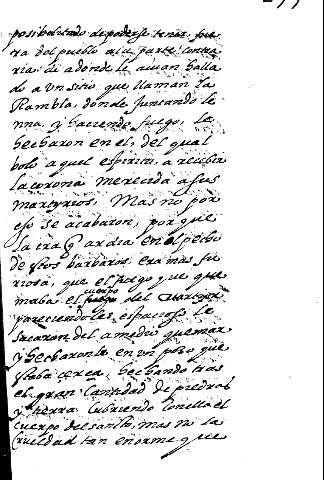 posibilitado de poderse tener fue
ra del pueblo a la parte contra
ria de adonde le avian halla
do a un sitio que llaman la
Rambla, donde juntando le
nna, y haciendo fuego, lo
hecharon en el, del qual
bolo aquel espiritu, a recibir
la corona merecida a sus
martyrios. Mas no por
eso se acabaron, por que
la ira q ardia en el pecho
de estos barbaros era mas fu
riosa, que el fuego que que
maba el cuerpo del martyr
pareciendoles espacioso le
sacaron del a medio quemar
y hecharonle en un poso que
estaba cerca, hechando tras
el gran cantidad de piedras
y tierra cubriendo con ella el
cuerpo del santo, mas no la
crueldad tan enorme que